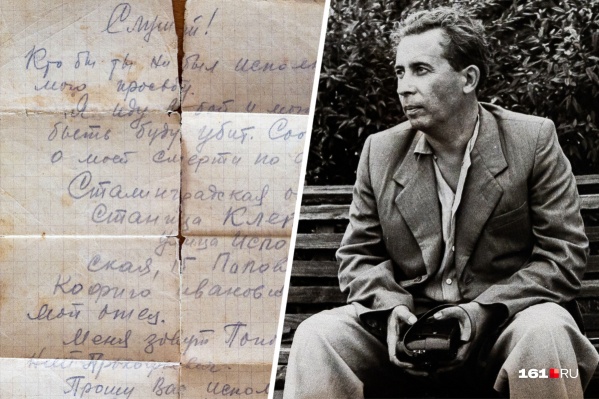 Слушай!
Кто бы ты не был исполн
мого просьбу.
Я иду в бой и мож
быть буду убит. Соо
о моей смерти по
Сталинградская о
Станица Клет
улица Испо
ская, 15 Попов
Ивановк
мой отец.
Меня зовут Поп
Прошу Вас испол
161.RU